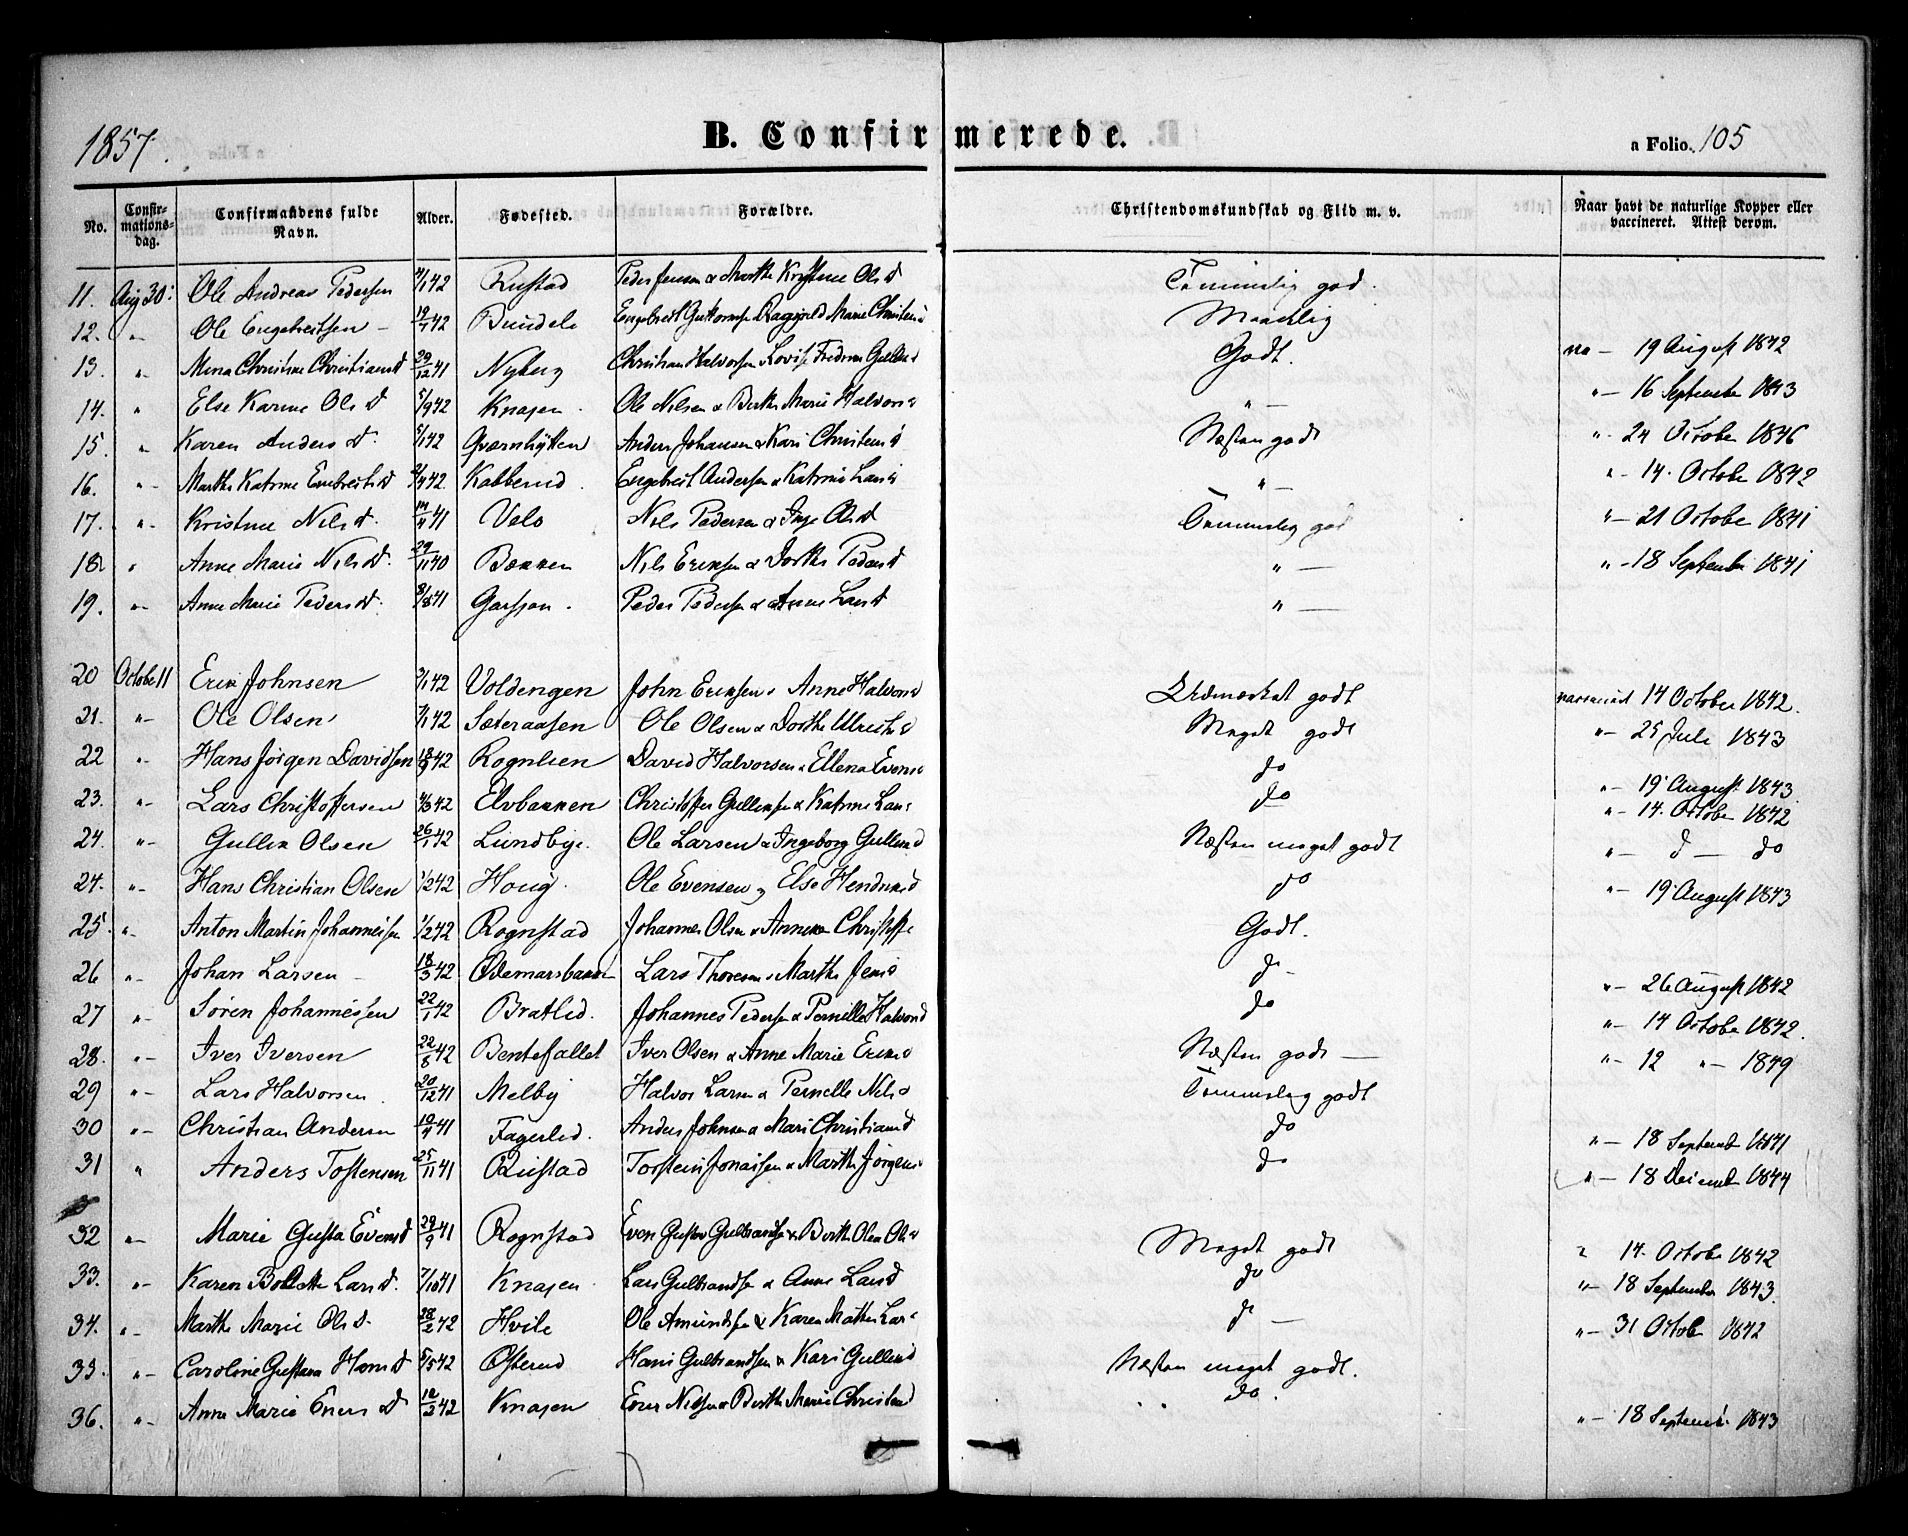 1857.
B. Confirmerede.
a Folio. 105
No. Confirmationsdag. Confirmandens fulde Navn. Alder. Fødested. Forældre. Christendomskundskab og Flid m. v. Naar havt de naturlige Kopper eller vaccineret. Attest derom.
11. Aug 30: Ole Andreas Pedersen 42 Rustad Peder Jensen & Marthe Kristine Olsd Temmelig god.
12. "- Ole Engebretsen - 19/1 42 Bundeli Engebret Guttormse Ragnild Marie Christensd Maadelig
13. "- Mina Christine Christiansd 29/12 41 Nyberg Christian Halvorsen Lovise Fredrine Gullksd Godt. va - 19 August 1842
14. " Else Karine Olsd 5/9 42 Knajen. Ole Nilsen & Berthe Marie Halvors "- "- 16 September 1843
15. "- Karen Andersd. 5/1 42 Qværnhytten Anders Johansen & Kari Christensd Næsten godt "- 24 October 1846
16. "- Marthe Katrine Enebretsd 2/4 42 Kabberud. Engebret Andersen & Katrine Larsd "- "- 14. October 1842
17. "- Kristine Nilsd. 14/11 41 Velo Nils Pedersen & Inge Olsd Temmelig god "- 21 October 1841
18 " Anne Marie Nilsd. 29/11 40 Bakken Nils Eriksen & Dorthe Pedersd "- "- 18 September 1841
19. "- Anne Marie Pedersd. 8/8 41 Garsjøen. Peder Pedersen & Anne Larsd "-
20 October 11 Erik Johnsen 42 Voldengen John Eriksen & Anne Halvorsd Udmærket godt vaccineret 14 October 1842.
21. "- Ole Olsen 7/1 42 Sæteraasen Ole Olsen & Dorthe Ulriksd Meget godt "- 25 Juli 1843
22 "- Hans Jörgen Davidsen 18/9 42 Rognlien David Halvorsen & Ellena Evens do "- 19 August 1843
23. "- Lars Christoffersen 4/3 42 Elvbakken Christoffer Gulliksen & Katrine Lars do "- 14. October 1842
24. "- Gullik Olsen 26/1 42 Lundbye. Ole Larsen & Ingeborg Gulliksd Næsten meget godt "- d - do
24. "- Hans Christian Olsen 1/2 42 Houg. Ole Evensen og Else Hendriksd do "- 19 August 1843
25. "- Anton Martin Johannessen 1/2 42 Rognstad Johannes Olsen & Anneke Christoffe Godt.
26 "- Johan Larsen - 18/3 42 Ødemarsbakken Lars Thoresen & Marthe Jensd do - "- 26 August 1842
27 "- Sören Johannessen 22/1 42 Bratlid. Johannes Pedersen & Pernille Halvorsd do "- 14 October 1842.
28. "- Iver Iversen 22/8 42 Bentefallet Iver Olsen & Anne Marie Eriksd Næsten godt - "- 12 "- 1849
29 "- Lars Halvorsen. 20/12 41 Melby Halvor Larsen & Pernelle Nilsd Temmelig godt
30 "- Christian Andersen 10/4 41 Fagerlid. Anders Johnsen & Mari Christiansd do "- 18 Septemb 1841
31 " Anders Tostensen 25/11 41 Rustad Torstein Jonassen & Marthe Jörgens do "- 18 Decemb 1844
32 "- Marie Gusta Evensd 29/9 41 Rognstad Even Gustav Gulbrandsen & Berthe Olea Olsd Meget godt " 14. October 1842
33. "- Karen Bolette Larsd. 7/10 41 Knajen. Lars Gulbrandse & Anne Larsd do "- 18 September 1843.
34. "- Marthe Marie Olsd. 28/2 42 Hvile Ole Amundsen & Karen Mathea Lars do - "- 31 October 1842
35. "- Caroline Gustava Hansd 5/5 42 Østerud Hans Gulbrandsen & Kari Gulliksd Næsten meget godt.
36. "- Anne Marie Eversd 12/2 42 Knajen Ever Nilsen & Berthe Marie Christensd do. "- 18 September 1843